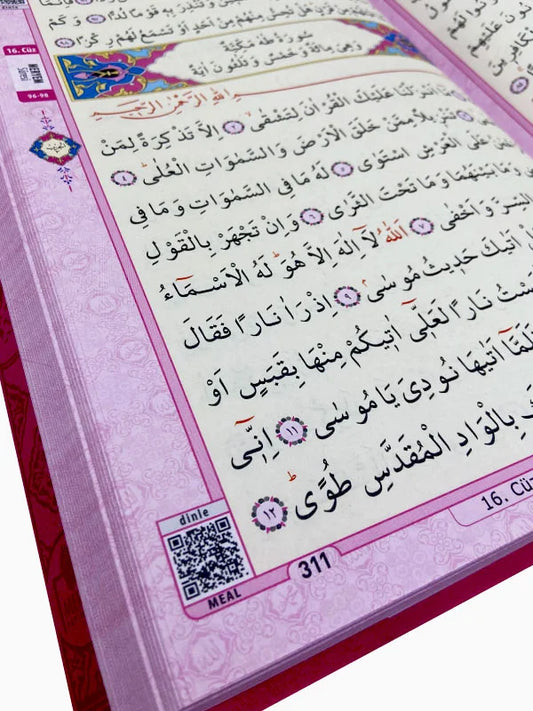 بِهِ قَوْمًا لُدًّا ﴿٩٧﴾ وَكَمْ
مِنْهُمْ مِنْ اَحَدٍ اَوْ تَسْمَعُ لَهُمْ رِكْزًا ﴿٩٨﴾
سُورَةُ طٰهٰ مَكِّيَّةٌ
وَهِيَ مِائَةٌ وَخَمْسٌ وَثَلٰثُونَ اٰيَةً
اللّٰهِ الرَّحْمٰنِ الرَّحِيمِ
مَٓا اَنْزَلْنَا عَلَيْكَ الْقُرْاٰنَ لِتَشْقٰىۙ ﴿٢﴾ اِلَّا تَذْكِرَةً لِمَنْ
تَنْزِيلًا مِمَّنْ خَلَقَ الْاَرْضَ وَالسَّمٰوَاتِ الْعُلٰىۜ ﴿٤﴾
عَلَى الْعَرْشِ اسْتَوٰى ﴿٥﴾ لَهُ مَا فِي السَّمٰوَاتِ وَمَا فِي
وَمَا بَيْنَهُمَا وَمَا تَحْتَ الثَّرٰى ﴿٦﴾ وَاِنْ تَجْهَرْ بِالْقَوْلِ
السِّرَّ وَاَخْفٰى ﴿٧﴾ اَللّٰهُ لَٓا اِلٰهَ اِلَّا هُوَۜ لَهُ الْاَسْمَٓاءُ
اَتٰيكَ حَدِيثُ مُوسٰىۢ ﴿٩﴾ اِذْ رَاٰ نَارًا فَقَالَ
نَارًا لَعَلّ۪ٓي اٰت۪يكُمْ مِنْهَا بِقَبَسٍ اَوْ
اَتٰيهَا نُودِيَ يَا مُوسٰى ﴿١١﴾ اِنّ۪ٓي
بِالْوَادِ الْمُقَدَّسِ طُوًىۜ ﴿١٢﴾
16. Cüz
MERYEM
Sûresi
96-98
dinle
MEAL
311
16. Cüz